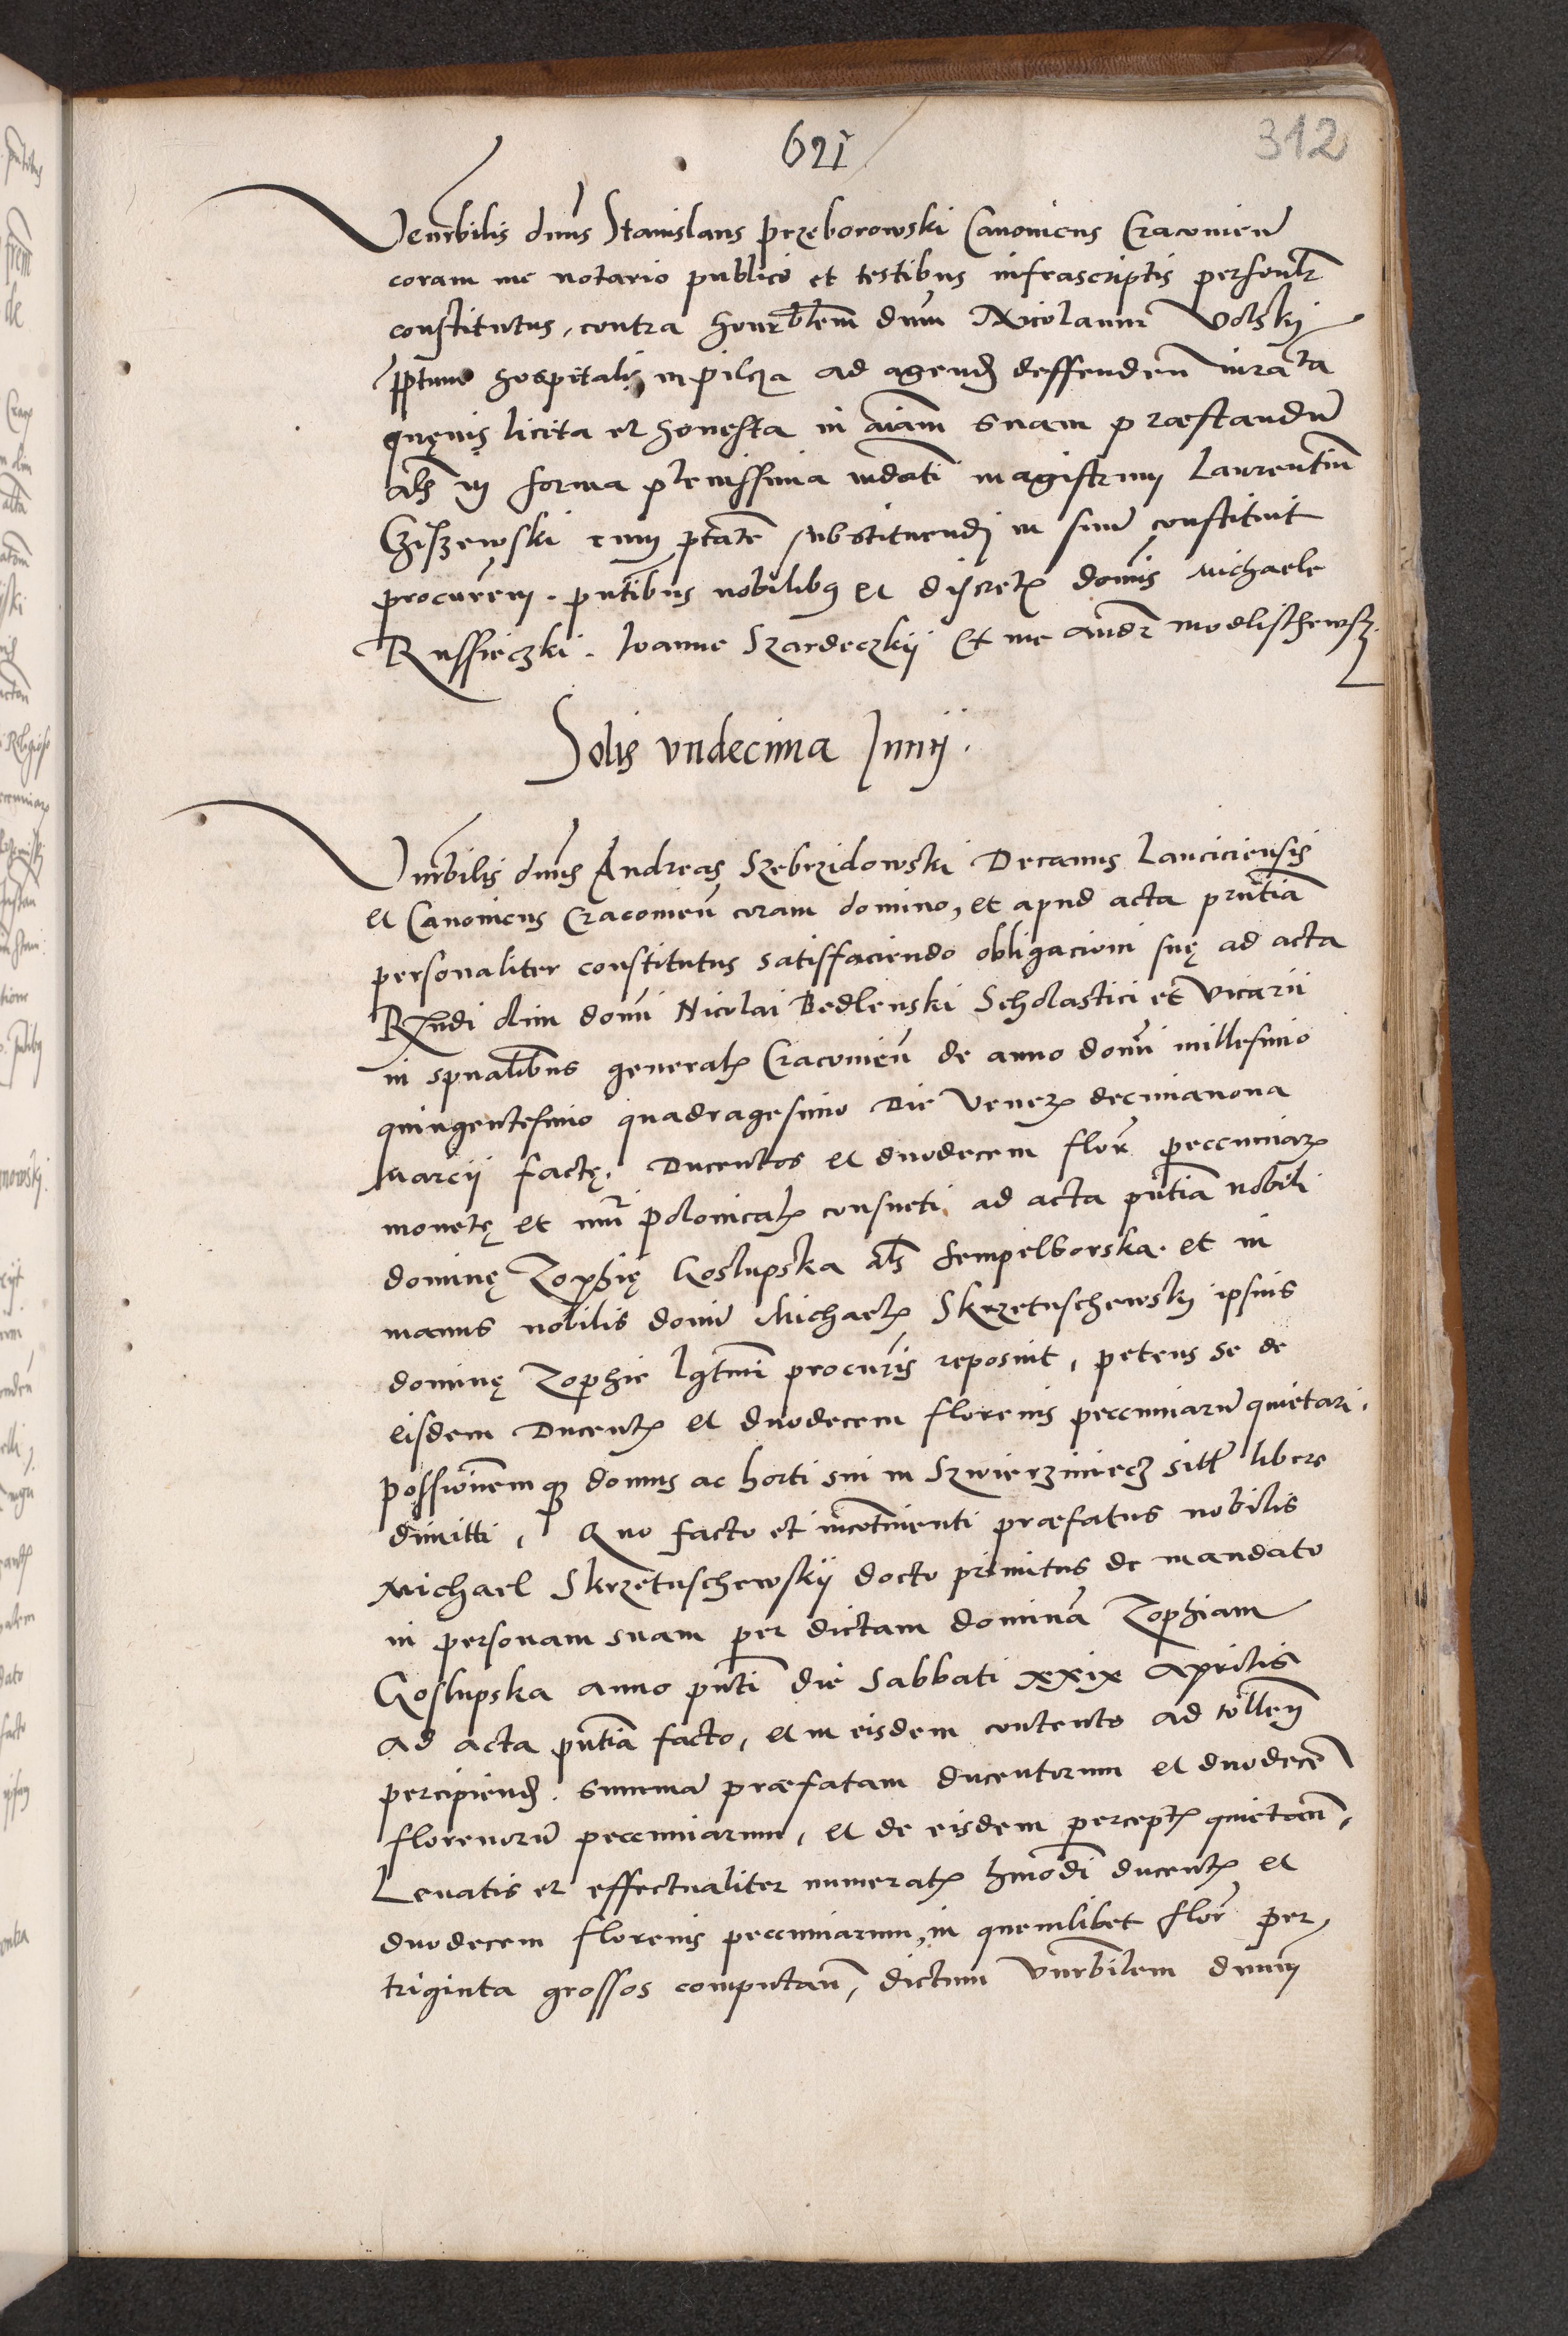 621
312
Venrbilis dnus Stanislaus przeborowski Canonicus Cracovien
coram me notario publico et testibus infrascriptis personlr
constitutus, contra honrblem dnm Nicolaum Volsky
pptum hospitalis in pilcza ad agend deffenden iurata
quevis licita et honesta in aiam suam præstandum
als in forma plenissima mdati magistrum Laurentium
Cziszewski cum ptate substituendi in suum constituit
procurem. pntibus nobilibus et discretis domis Michaele
Russieczki. Ioanne Szardeczkij Et me Andr modlischewsz.
Solis undecima Junij.
Vnrbilis dnus Andreas Szebrzidowski Decanus Lanciciensis
et Canonicus Cracovien coram domino, et apud acta prntia
personaliter constitutus satisffaciendo obligacioni suę ad acta
Rndi olim domi Nicolai Bedlenski Scholastici et Vicarii
in spualibus generalis Cracovien de anno domi millesimo
quingentesimo quadragesimo Die Veneris decimanona
Marcij factę. Ducentos et duodecem flor peccuniarum
monetę et nu polonicalis consueti ad acta pntia nobili
dominę Zophię Goslupska als Sempelborska. et in
manus nobilis domi Michaelis Skrzetuschewsky ipsius
dominę Zophie lgtmi procuris reposuit, petens se de
eisdem Ducentis et duodecem florenis peccuniarum quietari.
possionemque domus ac horti sui in Szwierziniecz sitt libere
dimitti, Quo facto et incotinenti præfatus nobilis
Michael Skrzetuschewskij docto primitus de mandato
in personam suam per dictam dominam Zophiam
Goslupska anno pnti die Sabbati xxix Aprilis
ad acta pntia facto, et in eisdem contento ad tollen
percipiend. Summam præfatam ducentorum et duodecem
florenorum peccuniarum, et de eisdem perceptis quietan,
Levatis et effectualiter numeratis hmodi ducentis et
duodecem florenis peccuniarum, in quemlibet flor per
triginta grossos computan, dictum Vnrbilem dnum